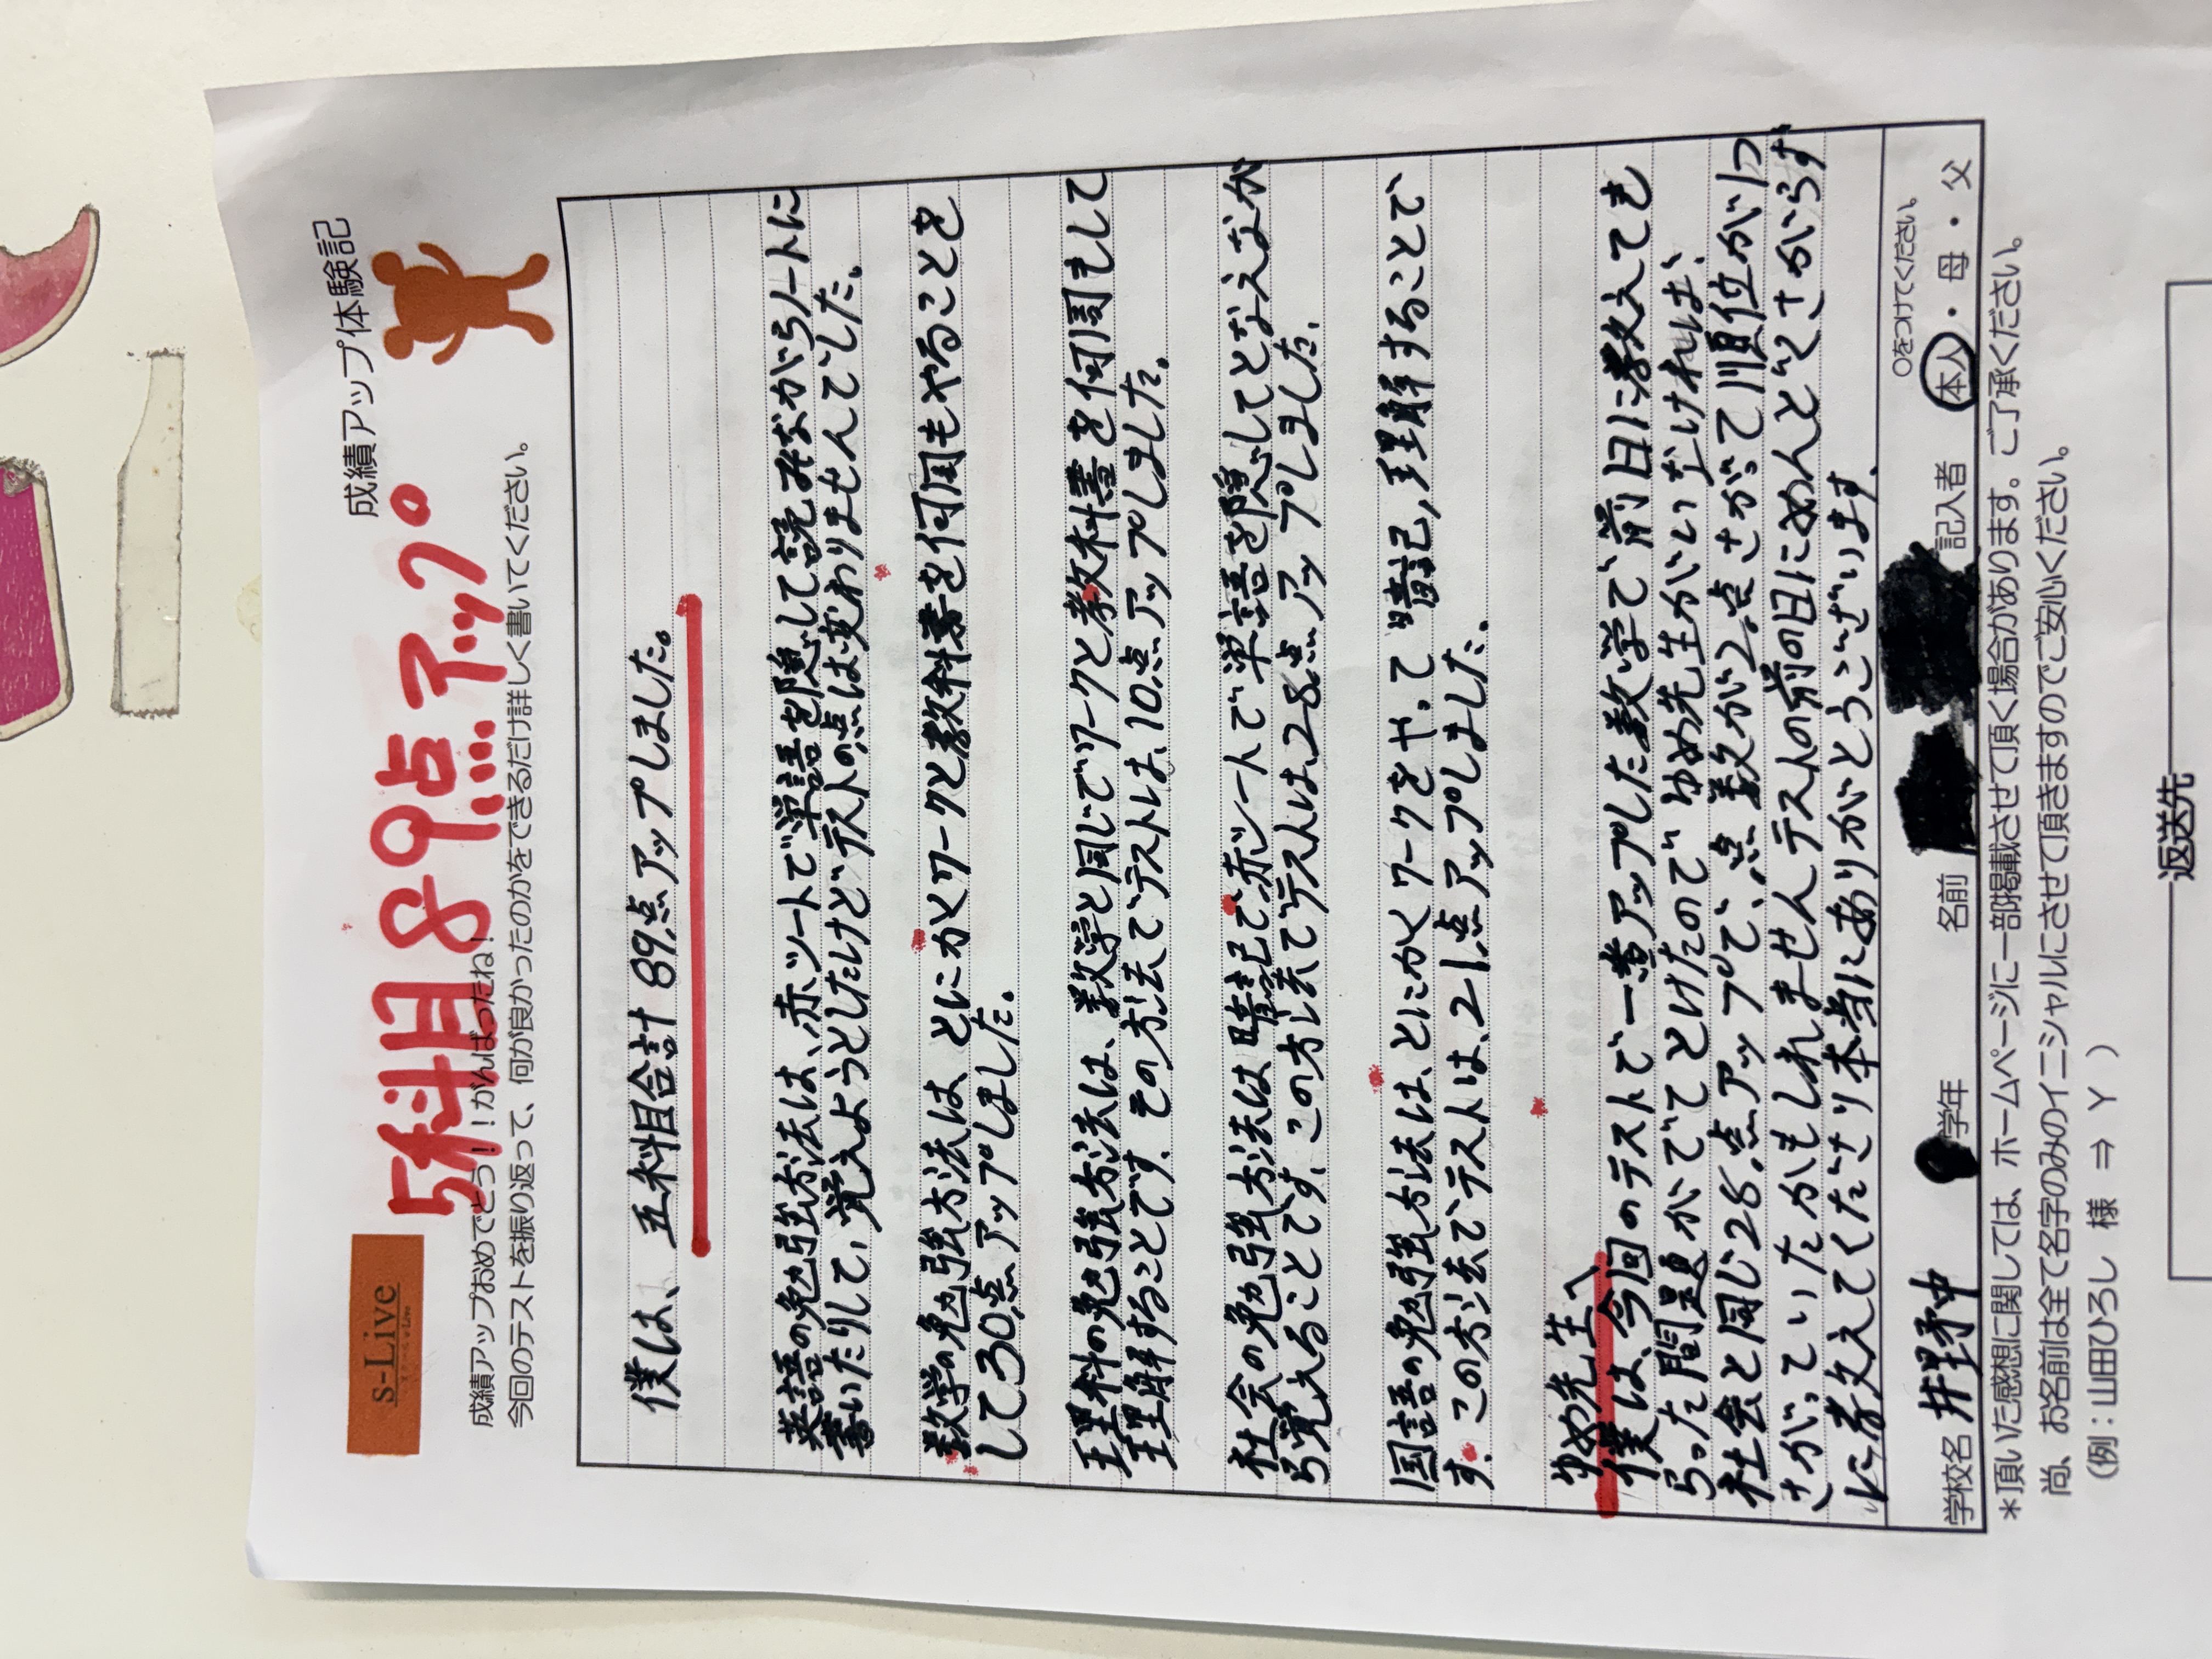 s-Live
成績アップ体験記
5科目89点アップ。
成績アップおめでとう!!がんばったね!
今回のテストを振り返って、何が良かったのかをできるだけ詳しく書いてください。
僕は、五科目合計89点アップしました。
英語の勉強方法は、赤シートで単語を隠して読みながらノートに
書いたりして、覚えようとしたけどテストの点は変わりませんでした。
数学の勉強方法は、とにかくワークと教科書を何周もやることを
して30点アップしました。
理科の勉強方法は、数学と同じでワークと教科書を何周もして
理解することです。その方法でテストは、10点アップしました。
社会の勉強方法は暗記で赤シートで単語を隠してとなえなが
ら覚えることです。この方法でテストは、28点アップしました。
国語の勉強方法は、とにかくワークをやって暗記,理解することで
す。この方法でテストは、21点アップしました。
ゆめ先生へ
僕は、今回のテストで一番アップした数学で前日に教えても
らった問題がでてとけたのでゆめ先生がいなければ、
社会と同じ28点アップで、点数が2点さがって順位が1つ
さがっていたかもしれませんテストの前の日にめんどくさがらず
に教えてくださり本当にありがとうございます。
学校名 井野中 学年 名前 記入者 本人・母・父
○をつけてください。
*頂いた感想に関しては、ホームページに一部掲載させて頂く場合があります。ご了承ください。
尚、お名前は全て名字のみのイニシャルにさせて頂きますのでご安心ください。
(例:山田ひろし 様 ⇒ Y )
返送先